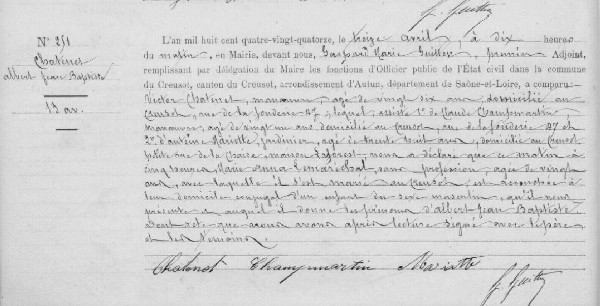 N° 251
Chatinot
Albert Jean Baptiste
13 av.
L'an mil huit cent quatre-vingt-quatorze, le treize avril, à dix heures
du matin, en Mairie, devant nous, Gaspard Marie Guillon, premier Adjoint,
remplissant par délégation du Maire les fonctions d'Officier public de l'État civil dans la commune
du Creusot, canton du Creusot, arrondissement d'Autun, département de Saône-et-Loire, a comparu
Victor Chatinot, manœuvre, âgé de vingt six ans, domicilié au
Creusot, rue de la Fonderie 27, lequel, assisté 1° de Claude Champmartin,
manœuvre, âgé de vingt un ans, domicilié au Creusot, rue de la Fonderie 27 et
2° d'Antoine Mariotte, jardinier, âgé de trente huit ans, domicilié au Creusot
petite rue de la maison nous a déclaré que ce matin à
cinq heures Marie Anna Lemaréchal, sans profession, âgée de vingt
ans, avec laquelle il s'est marié au Creusot, est accouchée à
leur domicile conjugal d'un enfant du sexe masculin, qu'il nous
présente et auquel il donne les prénoms d'Albert Jean Baptiste.
Dont acte que nous avons après lecture signé avec le père
et les témoins.
Chatinot Champmartin Mariotte